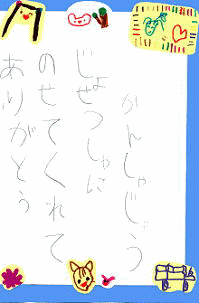 かんしゃじょう
じょせつしゃに
のせてくれて
ありがとう